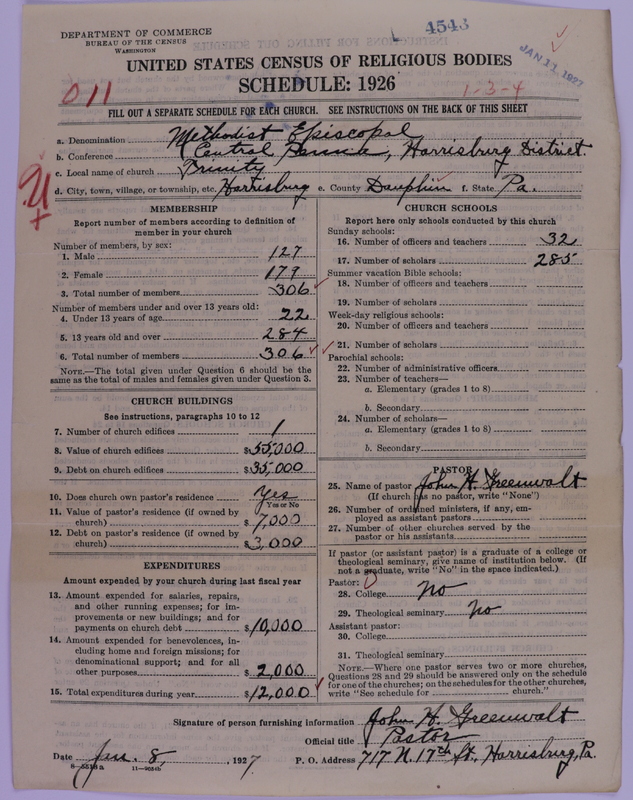 DEPARTMENT OF COMMERCE
BUREAU OF THE CENSUS
WASHINGTON
4543
JAN 11 1927
UNITED STATES CENSUS OF RELIGIOUS BODIES
SCHEDULE: 1926
011
1-3-4
FILL OUT A SEPARATE SCHEDULE FOR EACH CHURCH. SEE INSTRUCTIONS ON THE BACK OF THIS SHEET
a. Denomination Methodist Episcopal
b. Conference Central Penna, Harrisburg District.
c. Local name of church Trinity
d. City, town, village, or township, etc. Harrisburg e. County Dauphin f. State Pa.
MEMBERSHIP
Report number of members according to definition of
member in your church
Number of members, by sex:
1. Male 127
2. Female 179
3. Total number of members 306
Number of members under and over 13 years old:
4. Under 13 years of age 22
5. 13 years old and over 284
6. Total number of members 306
NOTE.—The total given under Question 6 should be
same as the total of males and females given under Question 3.
CHURCH BUILDINGS
See instructions, paragraphs 10 to 12
7. Number of church edifices 1
8. Value of church edifices $55,000
9. Debt on church edifices $35,000
10. Does church own pastor's residence Yes
Yes or No
11. Value of pastor's residence (if owned by
church) $7,000
12. Debt on pastor's residence (if owned by
church) $3,000
EXPENDITURES
Amount expended by your church during last fiscal year
13. Amount expended for salaries, repairs,
and other running expenses; for im-
provements or new buildings; and for
payments on church debt $10,000
14. Amount expended for benevolences, in-
cluding home and foreign missions; for
denominational support; and for all
other purposes $2,000
15. Total expenditures during year $12,000
CHURCH SCHOOLS
Report here only schools conducted by this church
Sunday schools:
16. Number of officers and teachers 32
17. Number of scholars 285
Summer vacation Bible schools:
18. Number of officers and teachers
19. Number of scholars
Week-day religious schools:
20. Number of officers and teachers
21. Number of scholars
Parochial schools:
22. Number of administrative officers
23. Number of teachers—
a. Elementary (grades 1 to 8)
b. Secondary
24. Number of scholars—
a. Elementary (grades 1 to 8)
b. Secondary
PASTOR
25. Name of pastor John H. Greenwalt
(If church has no pastor, write "None")
26. Number of ordained ministers, if any, em-
ployed as assistant pastors
27. Number of other churches served by the
pastor or his assistants
If pastor (or assistant pastor) is a graduate of a college or
theological seminary, give name of institution below. (If
not a graduate, write "No" in the space indicated.)
Pastor:
28. College No
29. Theological seminary No
Assistant pastor:
30. College
31. Theological seminary
NOTE.—Where one pastor serves two or more churches,
Questions 28 and 29 should be answered only on the schedule
for one of the churches; on the schedules for the other churches,
write "See schedule for church."
Signature of person furnishing information John H. Greenwalt
Official title Pastor
Date Jan. 8, 1927 P. O. Address 717 N. 17th St., Harrisburg, Pa.